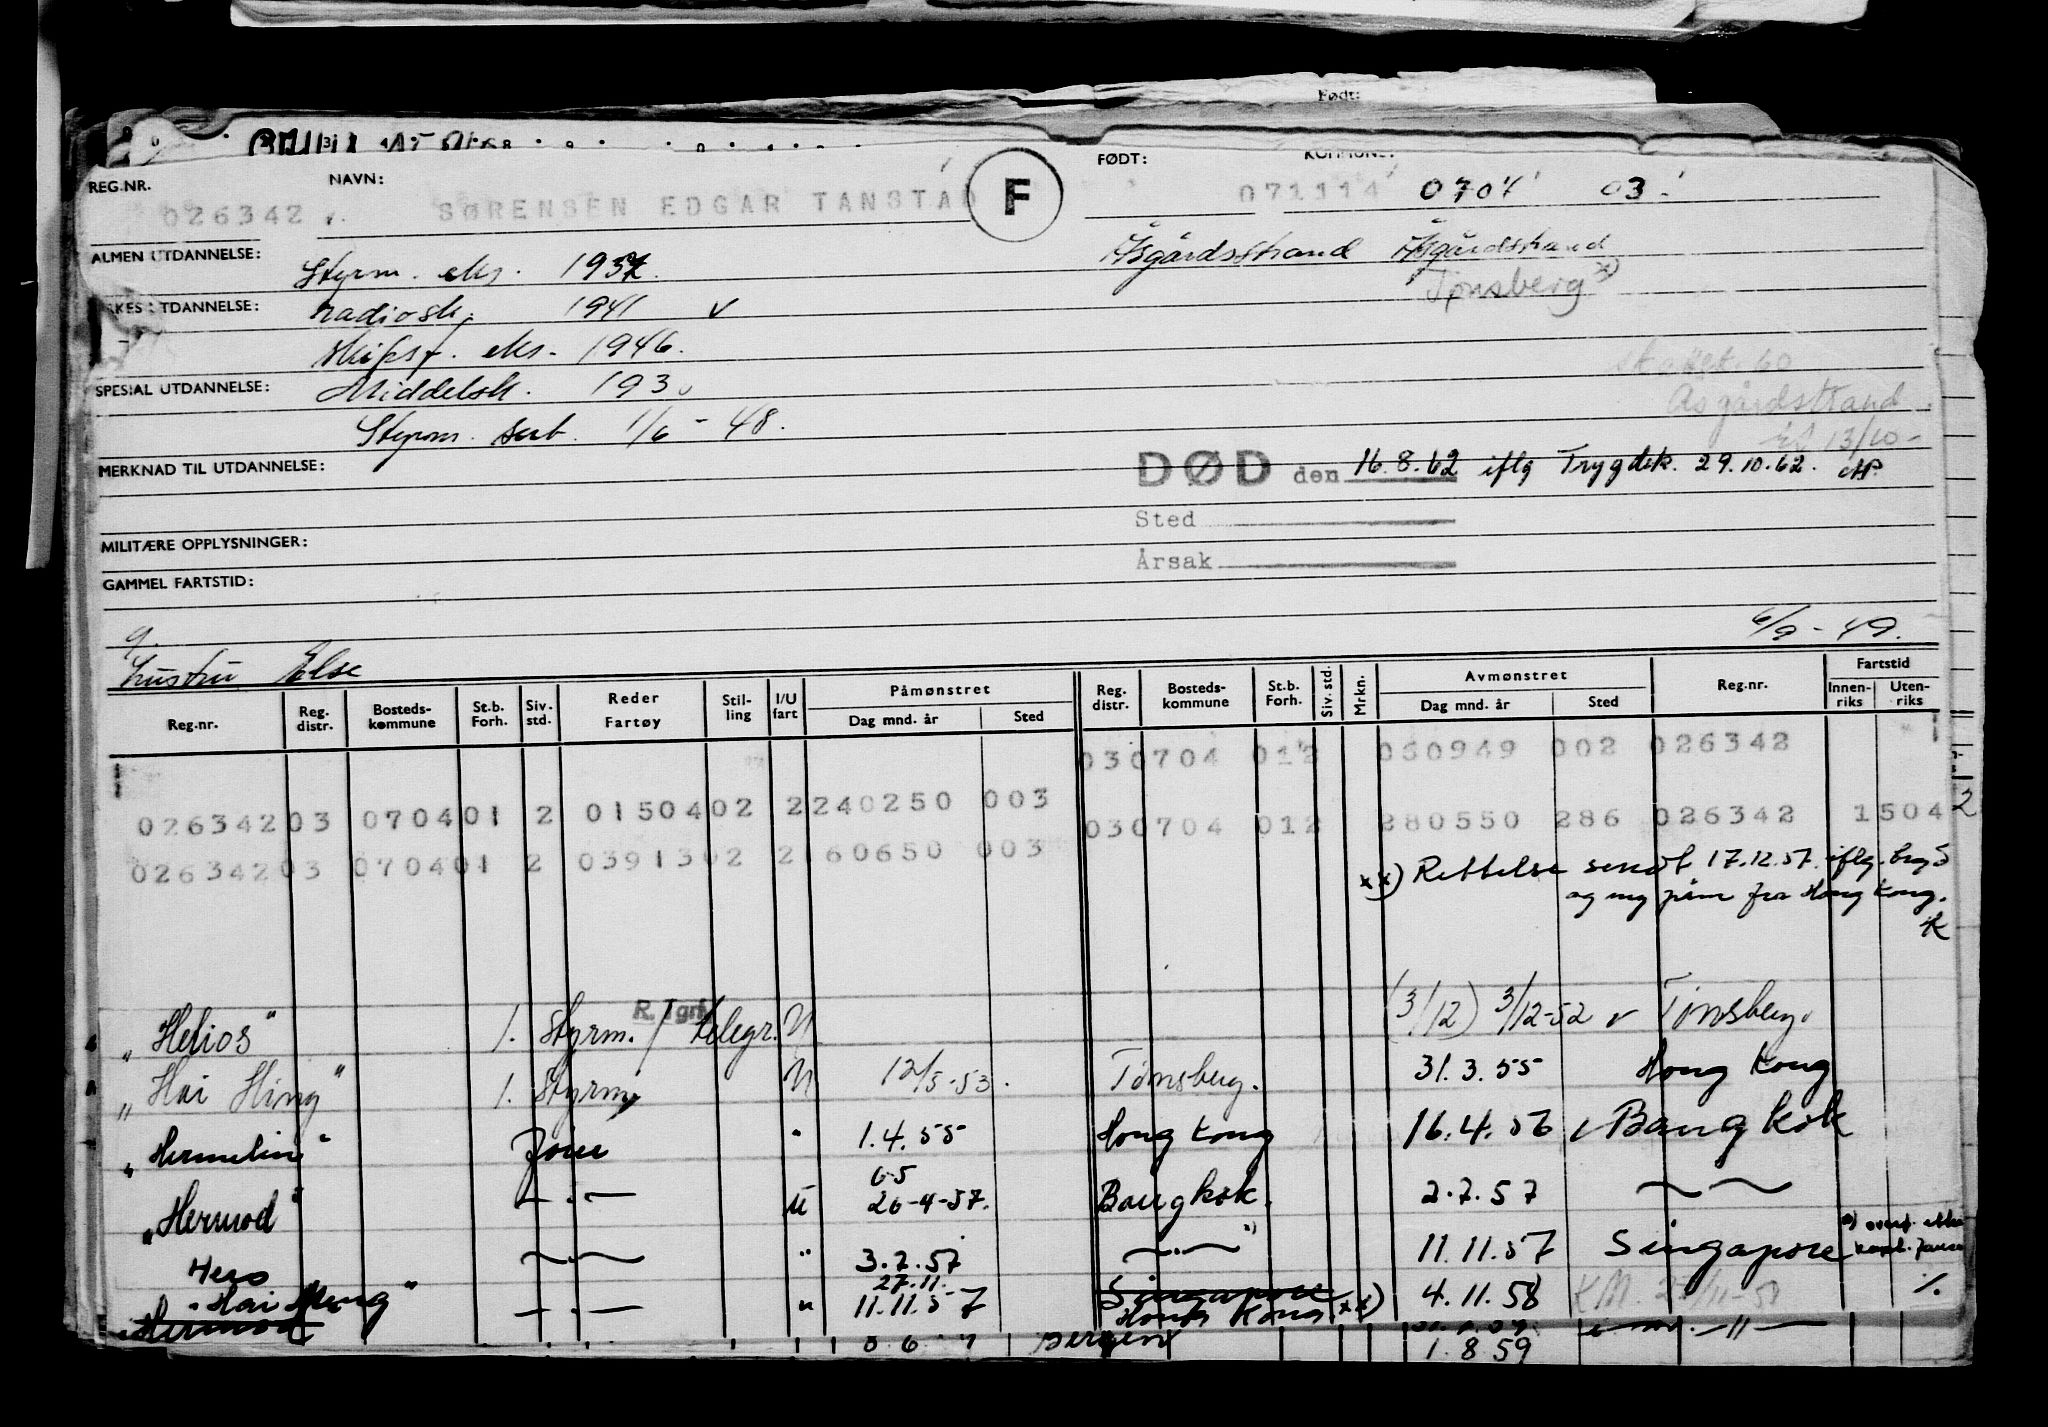 Født:
REG.NR. NAVN: FØDT: KOMMUNE:
026342 SØRENSEN EDGAR TANSTAD F 071114 0704 03
ALMEN UTDANNELSE: Styrm. eks. 1937. Åsgårdsstrand Åsgårdstrand
Tønsberg x)
UTDANNELSE: radiosk. 1941 v
skipsf. eks. 1946.
SPESIAL UTDANNELSE: Middelsk. 193
60
Åsgårdstrand
Styrm. sert. 1/6 - 48.
13/10-
MERKNAD TIL UTDANNELSE: DØD den 16.8.62 iflg Trygdek. 29.10.62.
Sted
MILITÆRE OPPLYSNINGER:
Årsak
GAMMEL FARTSTID:
6/9 - 49.
g.
hustru Else
Reg.nr. Reg. distr. Bosteds- kommune St.b. Forh. Siv. std. Reder Fartøy Stil- ling I/U fart Påmønstret Dag mnd. år Sted Reg. distr. Bosteds- kommune St.b. Forh. Siv. std. Mrkn. Avmønstret Dag mnd. år Sted Reg.nr. Fartstid Innen- riks Uten- riks
030704 012 060949 002 026342
026342 03 0704 01 2 0150402 2 240250 003 030704 012 280550 286 026342 1504
026342 03 0704 01 2 0391302 2 160650 003
xx) Rettelse sendt 17.12.57. iflg.
og ny påm fra Hong Kong.
"Helios" 1. Styrm. / telegr. R.Tgrf U (3/12) 3/12-52 v Tønsberg.
"Hai Hing" 1. Styrm. U 12/5-53. Tønsberg. 31.3.55 Hong Kong
"Hermelin" Fører " 1.4.55 Hong Kong 16.4.56 Bangkok
6-5
"Hermod" — . — U 26-4-57. Bangkok. 2.7.57
Hero " 3.7.57 11.11.57 Singapore
27.11.
"Hai Meng" — . — " 11.11.57 Singapore 4.11.58 %
Hermod Hong Kong xx)
Bergen 1.8.59